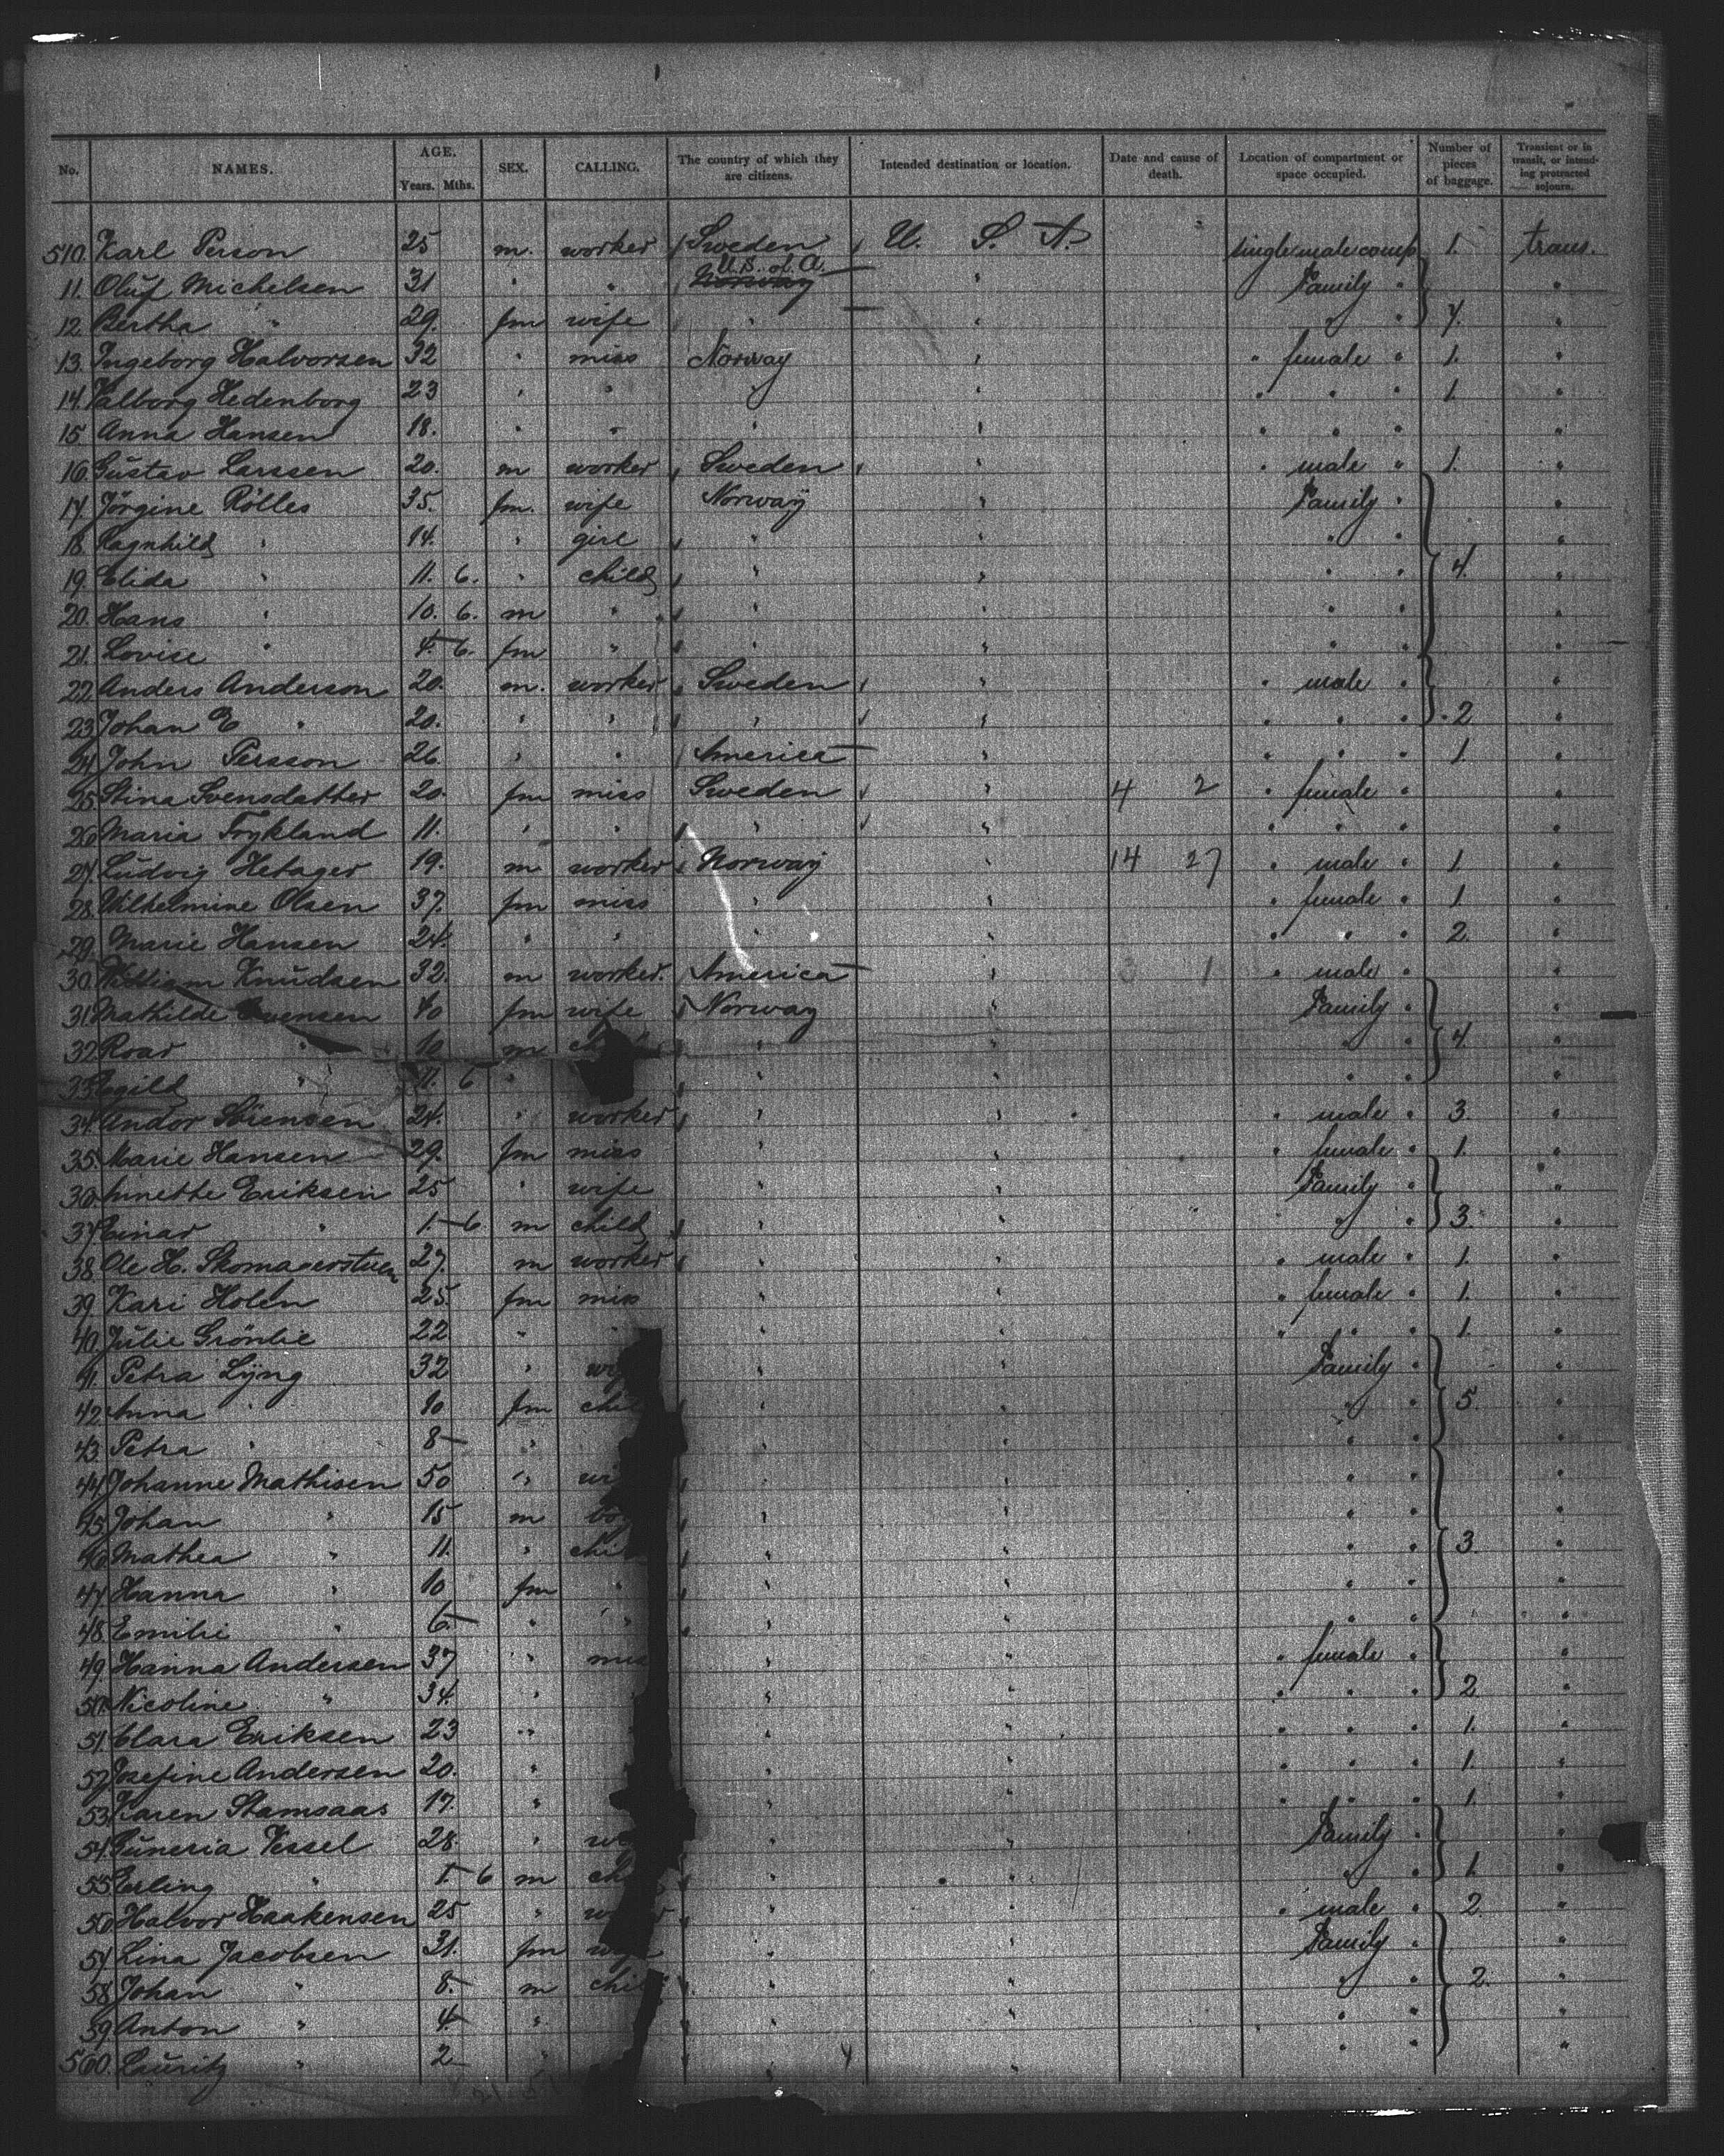 No. NAMES. AGE. Years. Mths. SEX. CALLING. The country of which they are citizens. Intended destination or location. Date and cause of death. Location of compartment or space occupied. Number of pieces of baggage. Transient or in transit, or intending protracted sojourn.
510. Karl Person 25 m. worker Sweden U. S. A. single male comp 1. trans.
11. Oluf Michelsen 31 " " Norway U. S. of A. " Family " "
12. Bertha " 29. fm wife " " " " "
13. Ingeborg Halvorsen 32 " miss Norway " " female " 1. "
14. Valborg Hedenborg 23 " " " " " " " 1. "
15 Anna Hansen 18. " " " " " " " "
16. Gustav Larssen 20. m worker Sweden " " male " 1. "
17. Jörgine Rölles 35. fm. wife Norway " Family " "
18. Ragnhild " 14. " girl " " " " "
19. Elida " 11. 6. " child " " " " 4. "
20. Hans " 10. 6. m " " " " " "
21. Lovise " 4 6. fm " " " " " "
22. Anders Anderson 20. m. worker Sweden " " male " "
23 Johan E " 20. " " " " " " " 2 "
24 John Persson 26. " " America " " " " 1. "
25 Stina Svensdatter 20. fm miss Sweden " 4 2 " female " "
26 Maria Frykland 11. " " " " " " " "
27. Ludvig Hetager 19. m worker Norway " 14 27 " male " 1. "
28. Wilhelmine Olsen 37. fm miss " " " female " 1. "
29. Marie Hansen 24. " " " " " " " 2. "
30. William Knudsen 32. m worker. America " 3 1 " male " "
31. Mathilde Evensen 40 fm wife Norway " Family " "
32. Roar " 10 m " " " " 4. "
33. Egild " 11. 6 " " " " " "
34. Andor Sörensen 24. " worker " " " male " 3. "
35. Marie Hansen 29. fm miss " " " female " 1. "
36 Annette Eriksen 25 " wife " " Family " "
37 Einar " 1 6 m child " " " " 3. "
38. Ole H. Skomagerstuen 27. m worker " " " male " 1. "
39. Kari Holen 25. fm miss " " " female " 1. "
40. Julie Grönlie 22. " " " " " " " 1. "
41. Petra Lyng 32 " " " Family " "
42. Anna " 10 fm " " " " 5. "
43. Petra " 8 " " " " " "
44 Johanne Mathisen 50 " " " " " "
45 Johan " 15 m " " " " "
46 Mathea " 11. " " " " " 3. "
47 Hanna " 10 fm " " " " " "
48. Emilie " 6 " " " " " " "
49. Hanna Andersen 37 " " " " female " "
50. Nicoline " 34. " " " " " " 2. "
51. Clara Eriksen 23 " " " " " " 1. "
52 Josefine Andersen 20. " " " " " " 1. "
53. Karen Stamsaas 17. " " " " " " 1. "
54. Guneria Vessel 28. " " " Family " "
55 Erling " 1 6 m " " " " 1. "
56 Halvor Haakensen 25 " " " " male " 2. "
57 Lina Jacobsen 31. fm " " Family " "
58 Johan " 8. m " " " " 2. "
59 Anton " 4 " " " " " "
560. Lauritz " 2 " " " " "